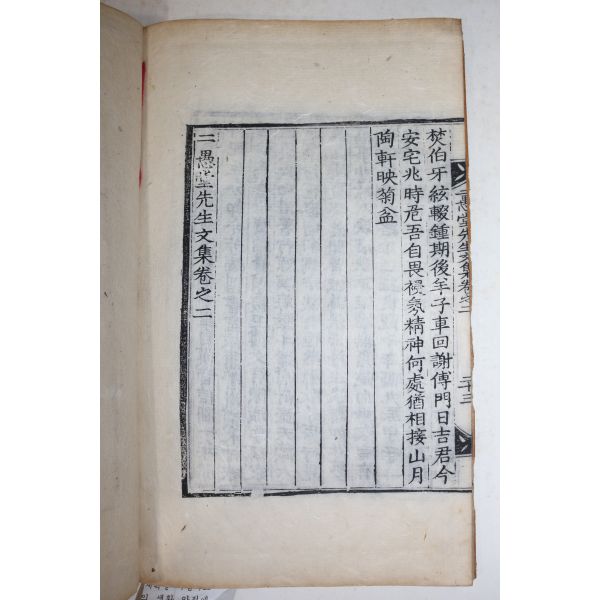 二愚堂先生文集卷之二
二十三
焚伯牙絃輟鍾期後羊子車回謝傅門日吉君今
安宅兆時危吾自畏祲氛精神何處猶相接山月
陶軒映菊盆
二愚堂先生文集卷之二